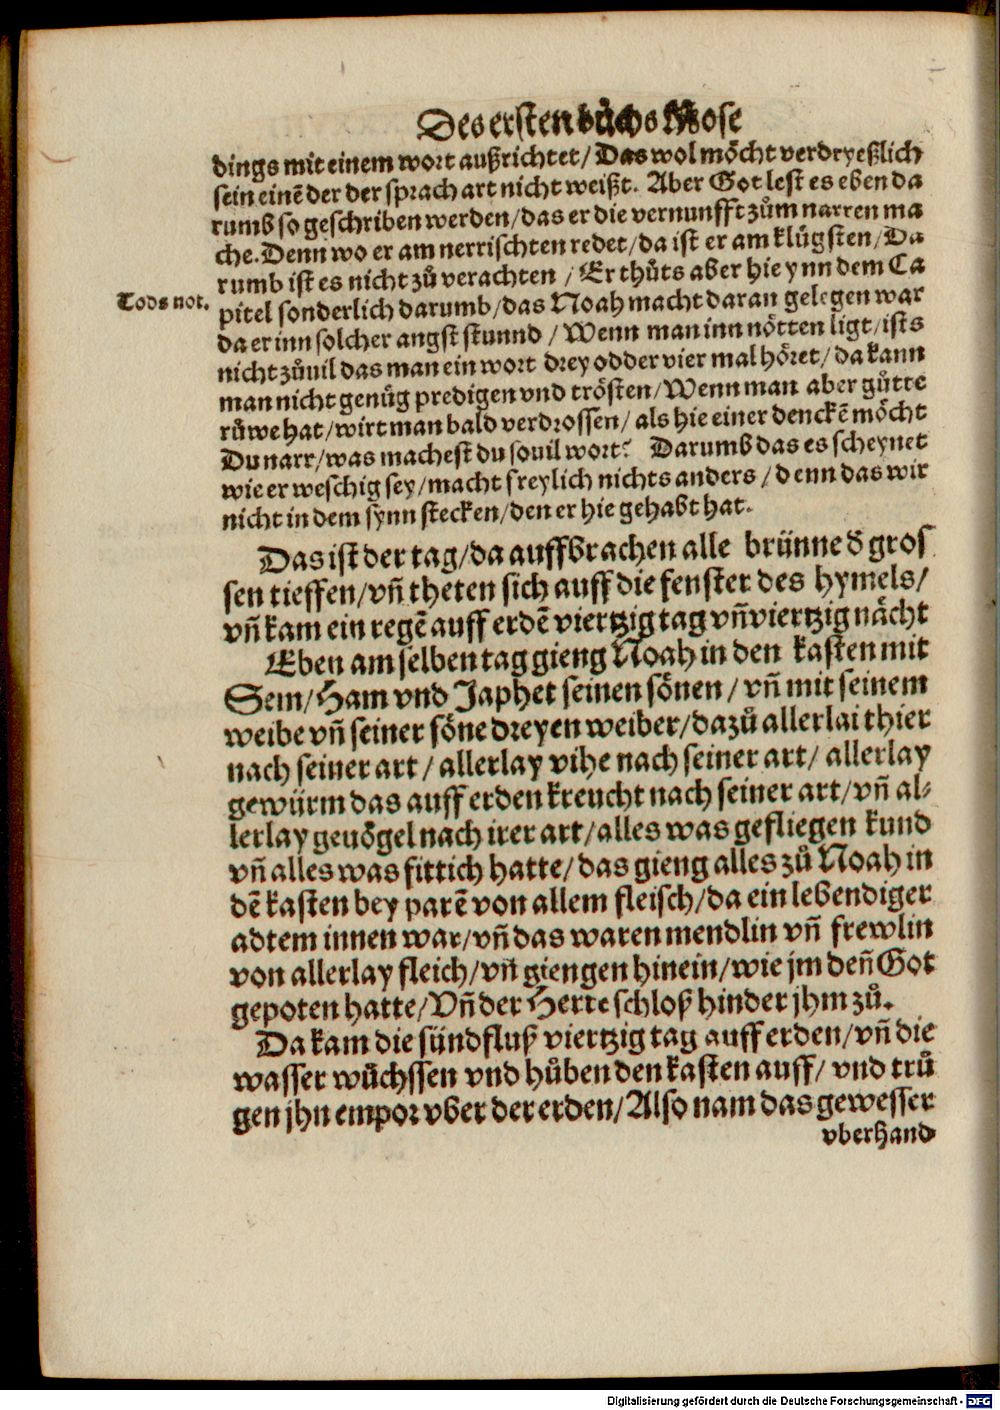 Des ersten bůchs Mose
dings mit einem wort außrichtet/ Das wol möcht verdryeßlich
sein einē der der sprach art nicht weißt. Aber Got lest es eben da
rumb so geschriben werden/das er die vernunfft zům narren ma
che. Denn wo er am nerrischten redet/da ist er am klügsten/Da
rumb ist es nicht zů verachten / Er thůts aber hie ynn dem Ca
Tods not.
pitel sonderlich darumb/das Noah macht daran gelegen war
da er inn solcher angst stunnd / Wenn man inn nötten ligt/ists
nicht zůuil das man ein wort drey odder vier mal höret/da kann
man nicht genůg predigen vnd trösten/Wenn man aber gůtte
růwe hat/wirt man bald verdrossen/ als hie einer denckē möcht
Du narr/was machest du souil wort? Darumb das es scheynet
wie er weschig sey/macht freylich nichts anders/denn das wir
nicht in dem synn stecken/den er hie gehabt hat.
Das ist der tag/da auffbrachen alle brünne d̕ gros
sen tieffen/vn̄ theten sich auff die fenster des hymels/
vn̄ kam ein regē auff erdē viertzig tag vn̄ viertzig nächt
Eben am selben tag gieng Noah in den kasten mit
Sem/Ham vnd Japhet seinen sönen/vn̄ mit seinem
weibe vn̄ seiner söne dreyen weiber/dazů allerlai thier
nach seiner art / allerlay vihe nach seiner art/ allerlay
gewürm das auff erden kreucht nach seiner art/vn̄ al⸗
lerlay geuögel nach irer art/alles was gefliegen kund
vn̄ alles was fittich hatte/das gieng alles zů Noah in
dē kasten bey parē von allem fleisch/da ein lebendiger
adtem innen war/vn̄ das waren mendlin vn̄ frewlin
von allerlay fleich/vn̄ giengen hinein/wie jm den̄ Got
gepoten hatte/Vn̄ der Herre schloß hinder jhm zů.
Da kam die sündfluß viertzig tag auff erden/vn̄ die
wasser wůchssen vnd hůben den kasten auff/ vnd trů
gen jhn empor vber der erden/Also nam das gewesser
vberhand
Digitalisierung gefördert durch die Deutsche Forschungsgemeinschaft - DFG